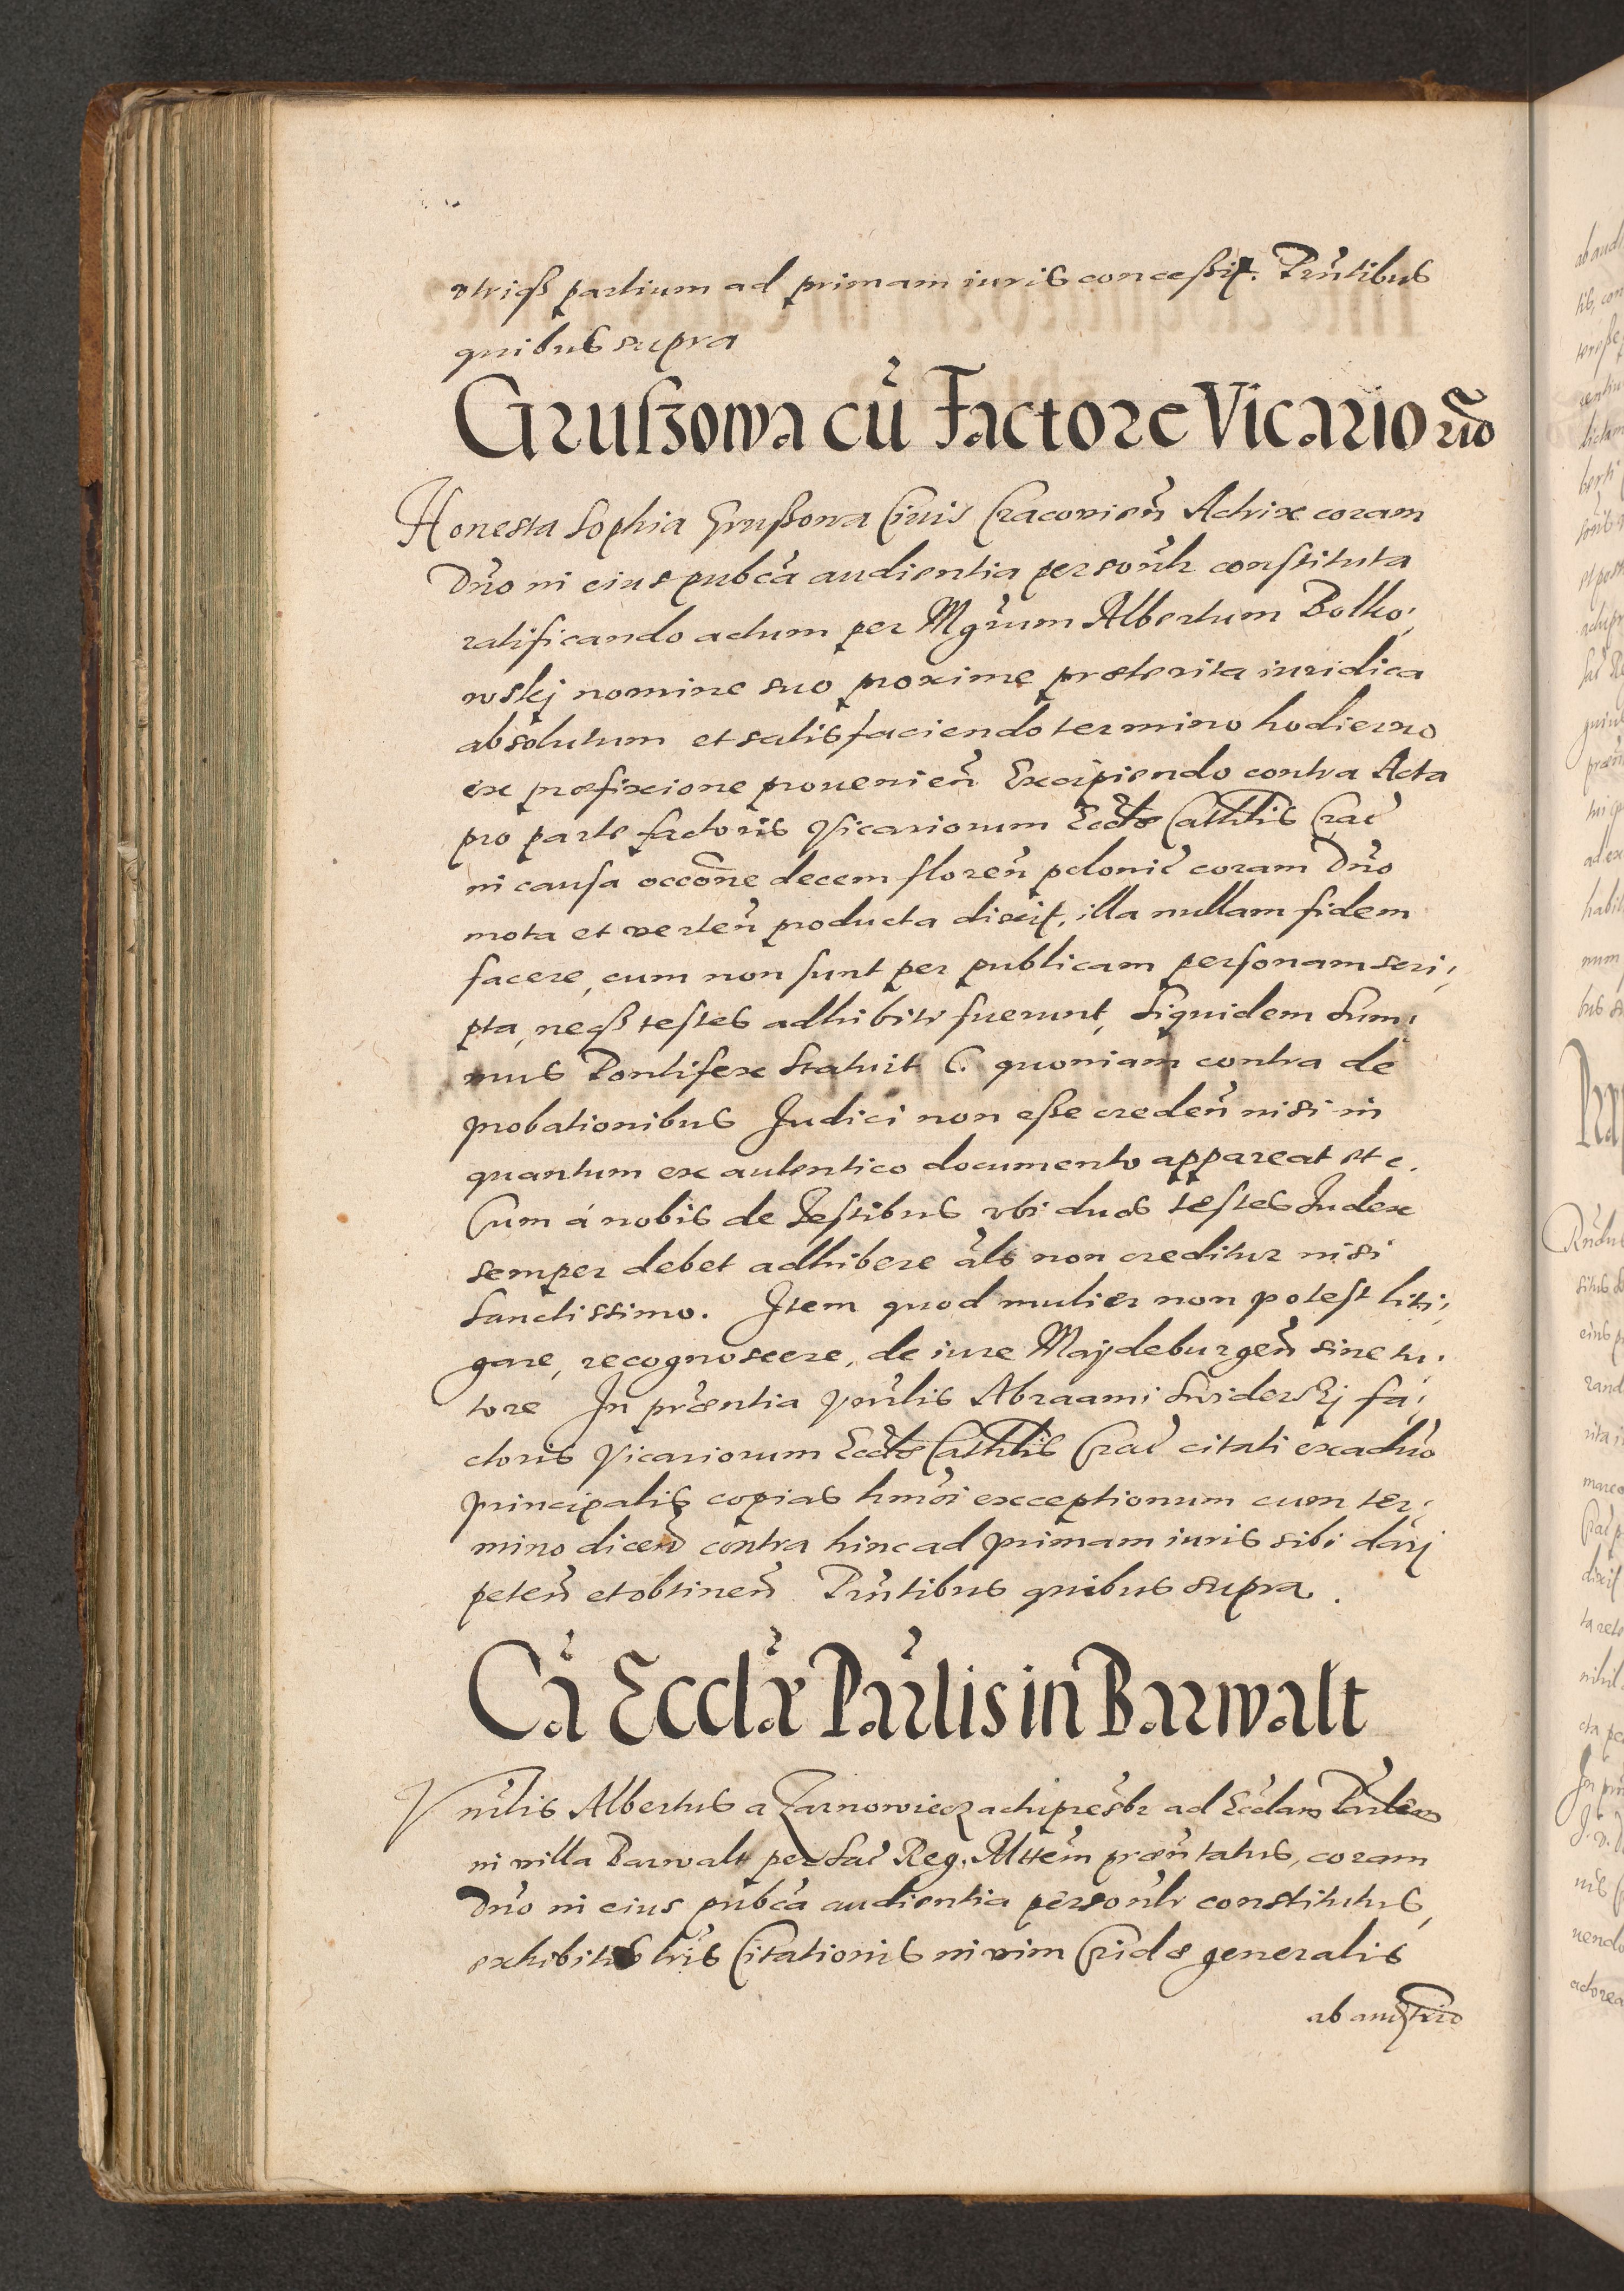 vtriqꝫ partium ad primam iuris conceßit. Pñtibus
quibus supra
Grußowa cũ Factore Vicarioꝝ
Honesta Sophia Grußowa Ciuis Cracouieñ Actrix coram
Dño in eius pubca audientia personlr constituta
ratificando actum per Mgrum Albertum Bolko,
wskj nomine suo proxime præterita iuridica
absolutum et satisfaciendo termino hodierno
ex præfixione prouenieñ Excipiendo contra Acta
pro parte factoris Vicariorum Eccłæ Cathłis Crac
in causa occõne decem floreñ polonic coram Dño
mota et verteñ producta dixit, illa nullam fidem
facere, cum non sunt per publicam personam scri,
pta, neqꝫ testes adhibiti fuerunt, siquidem Sum,
mus Pontifex statuit C. quoniam contra de
probationibus Judici non eße credeñ nisi in
quantum ex autentico documento appareat etc.
Cum á nobis de Testibus vbi duos testes Judex
semper debet adhibere als non creditur nisi
Sanctissimo. Item quod mulier non potest liti,
gare, recognoscere, de iure Majdeburgeñ sine tu,
tore In præntia Vnrlis Abraami Swiderskj fa,
ctoris Vicariorum Eccłæ Cathłis Crac citati ex aduo
principalis copias hmoi exceptionum cum ter,
mino diceñ contra hinc ad primam iuris sibi darj
peteñ et obtineñ Pñtibus quibus supra.
Cã Ecclæ Parlis in Barwalt
Vnrlis Albertus a Zarnowiecz achipresbr ad Ecclam Parlem
in villa Barwalt per Sac Reg. Mttem præntatus, coram
Dño in eius pubca audientia personlr constitutus,
exhibitis lris Citationis in vim Cridæ generalis